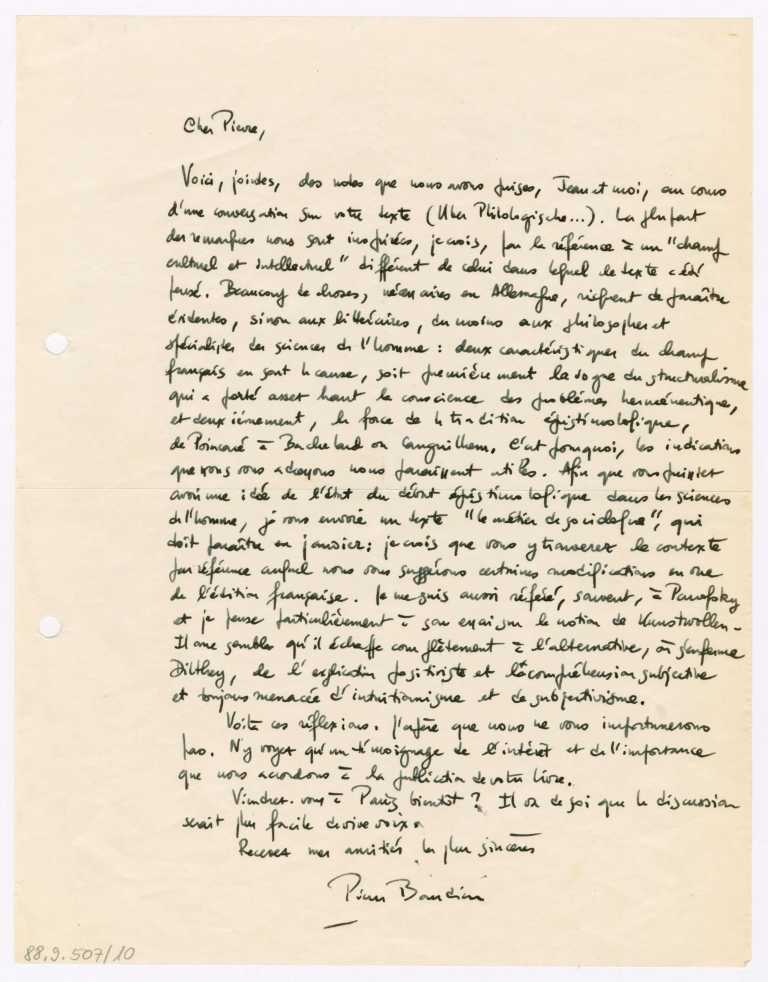 Cher Pierre,
Voici, jointes, des notes que nous avons prises, Jean et moi, au cours
d'une conversation sur votre texte (Uber Philologische...). La plupart
des remarques nous sont inspirées, je crois, par la référence à un "champ
culturel et intellectuel" différent de celui dans lequel le texte a été
pensé. Beaucoup de choses, nécessaires en Allemagne, risquent de paraître
évidentes, sinon aux littéraires, du moins aux philosophes et
spécialistes des sciences de l'homme : deux caractéristiques du champ
français en sont la cause, soit premièrement la vogue du structuralisme
qui a porté assez haut la conscience des problèmes herméneutique,
et deuxièmement, la force de la tradition épistémologique,
de Poincaré à Bachelard ou Canguilhem. C'est pourquoi, les indications
que nous vous adressons nous paraissent utiles. Afin que vous puissiez
avoir une idée de l'état du débat épistémologique dans les sciences
de l'homme, je vous envoie un texte "le métier de sociologue", qui
doit paraître en janvier : je crois que vous y trouverez le contexte
par référence auquel nous vous suggérons certaines modifications en vue
de l'édition française. Je me suis aussi référé, souvent, à Panofsky
et je pense particulièrement à son essai sur la notion de Kunstwollen.
Il me semble qu'il échappe complètement à l'alternative, où s'enferme
Dilthey, de l'explication positiviste et la compréhension subjective
et toujours menacée d'intuitionisme et de subjectivisme.
Voilà ces réflexions. J'espère que nous ne vous importunerons
pas. N'y voyez qu'un témoignage de l'intérêt et de l'importance
que nous accordons à la publication de votre livre.
Viendrez-vous à Paris bientôt ? Il va de soi que la discussion
serait plus facile de vive voix.
Recevez mes amitiés les plus sincères
Pierre Bourdieu
88.9.507/10